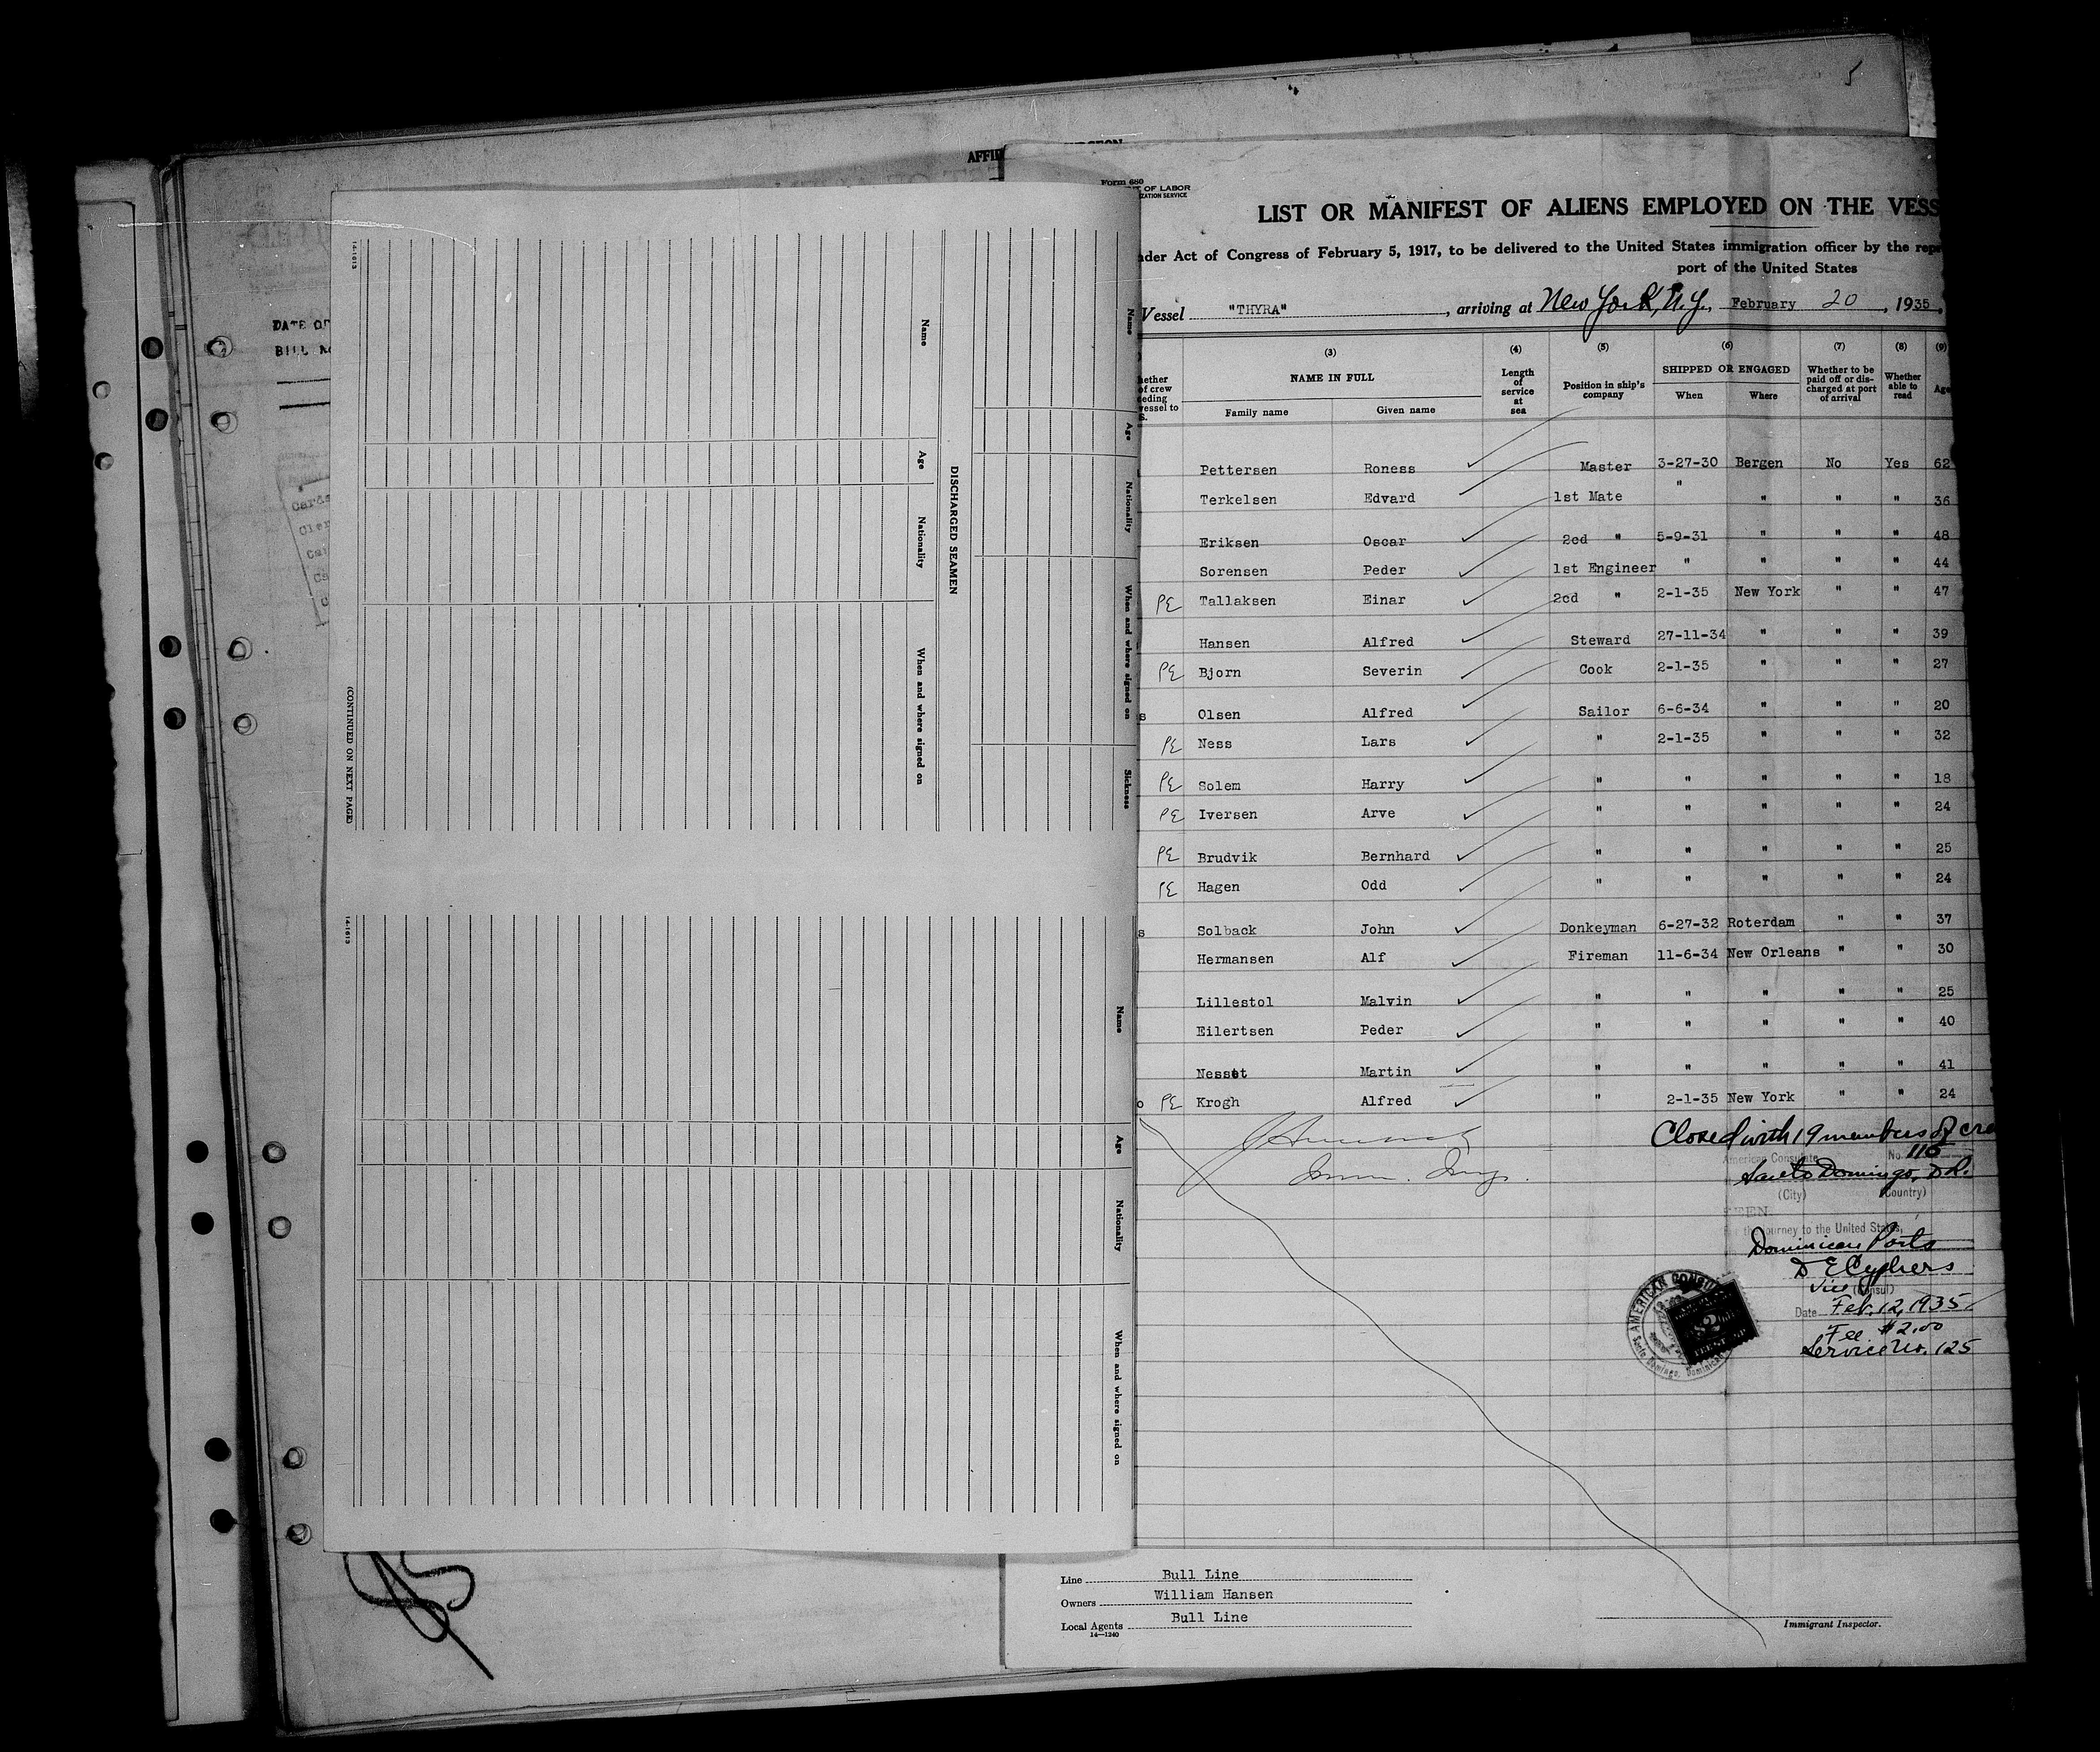 5
AFFI
DATE OF
BILL No
Form 680
T OF LABOR
ZATION SERVICE
LIST OR MANIFEST OF ALIENS EMPLOYED ON THE VESS
nder Act of Congress of February 5, 1917, to be delivered to the United States immigration officer by the repr
port of the United States
Vessel "THYRA" , arriving at New York, N.Y., February 20 , 1935,
(3) (4) (5) (6) (7) (8) (9)
hether of crew eding vessel to S. NAME IN FULL Length of service at sea Position in ship's company SHIPPED OR ENGAGED Whether to be paid off or discharged at port of arrival Whether able to read Age
Family name Given name When Where
Pettersen Roness Master 3-27-30 Bergen No Yes 62
Terkelsen Edvard 1st Mate " " " " 36
Eriksen Oscar 2cd " 5-9-31 " " " 48
Sorensen Peder 1st Engineer " " " " 44
PE Tallaksen Einar 2cd " 2-1-35 New York " " 47
Hansen Alfred Steward 27-11-34 " " " 39
PE Bjorn Severin Cook 2-1-35 " " " 27
s Olsen Alfred Sailor 6-6-34 " " " 20
PE Ness Lars " 2-1-35 " " " 32
PE Solem Harry " " " " " 18
PE Iversen Arve " " " " " 24
PE Brudvik Bernhard " " " " " 25
PE Hagen Odd " " " " " 24
s Solback John Donkeyman 6-27-32 Roterdam " " 37
Hermansen Alf Fireman 11-6-34 New Orleans " " 30
Lillestol Malvin " " " " " 25
Eilertsen Peder " " " " " 40
Nesset Martin " " " " " 41
o PE Krogh Alfred " 2-1-35 New York " " 24
Closed with 19 members of cre
American Consulate No. 115
Santo Domingo, D.R.
(City) (Country)
SEEN
For the journey to the United States,
Dominican Ports
D E Cyphers
Vice (Consul)
Date Feb. 12, 1935
Fee $2.00
Service No. 125
AMERICAN CONSUL
Santo Domingo, Dominican
Imm. Insp.
Line Bull Line
Owners William Hansen
Local Agents Bull Line
14—1240
Immigrant Inspector.
Name
Age
Nationality
When and where signed on
Sickness
DISCHARGED SEAMEN
Name
Age
Nationality
When and where signed on
(CONTINUED ON NEXT PAGE)
14-1613
Name
Age
Nationality
When and where signed on
14-1613